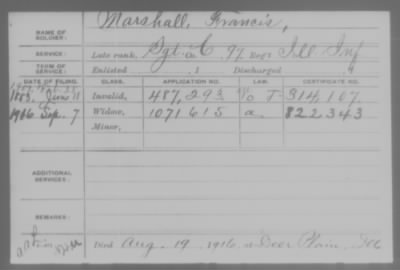 NAME OF SOLDIER: Marshall, Francis,
SERVICE: Late rank, Sgt. Co. C, 97 Reg't Ill Inf
TERM OF SERVICE: Enlisted , 1 Discharged , 1
DATE OF FILING. CLASS. APPLICATION NO. LAW. CERTIFICATE NO.
1883, June 11 Invalid, 487,293 314,107
1916 Sep. 7 Widow, 1071615 a. 822343
Minor,
ADDITIONAL SERVICES:
REMARKS:
Died Aug. 19, 1916, at Deer Plain, Ill